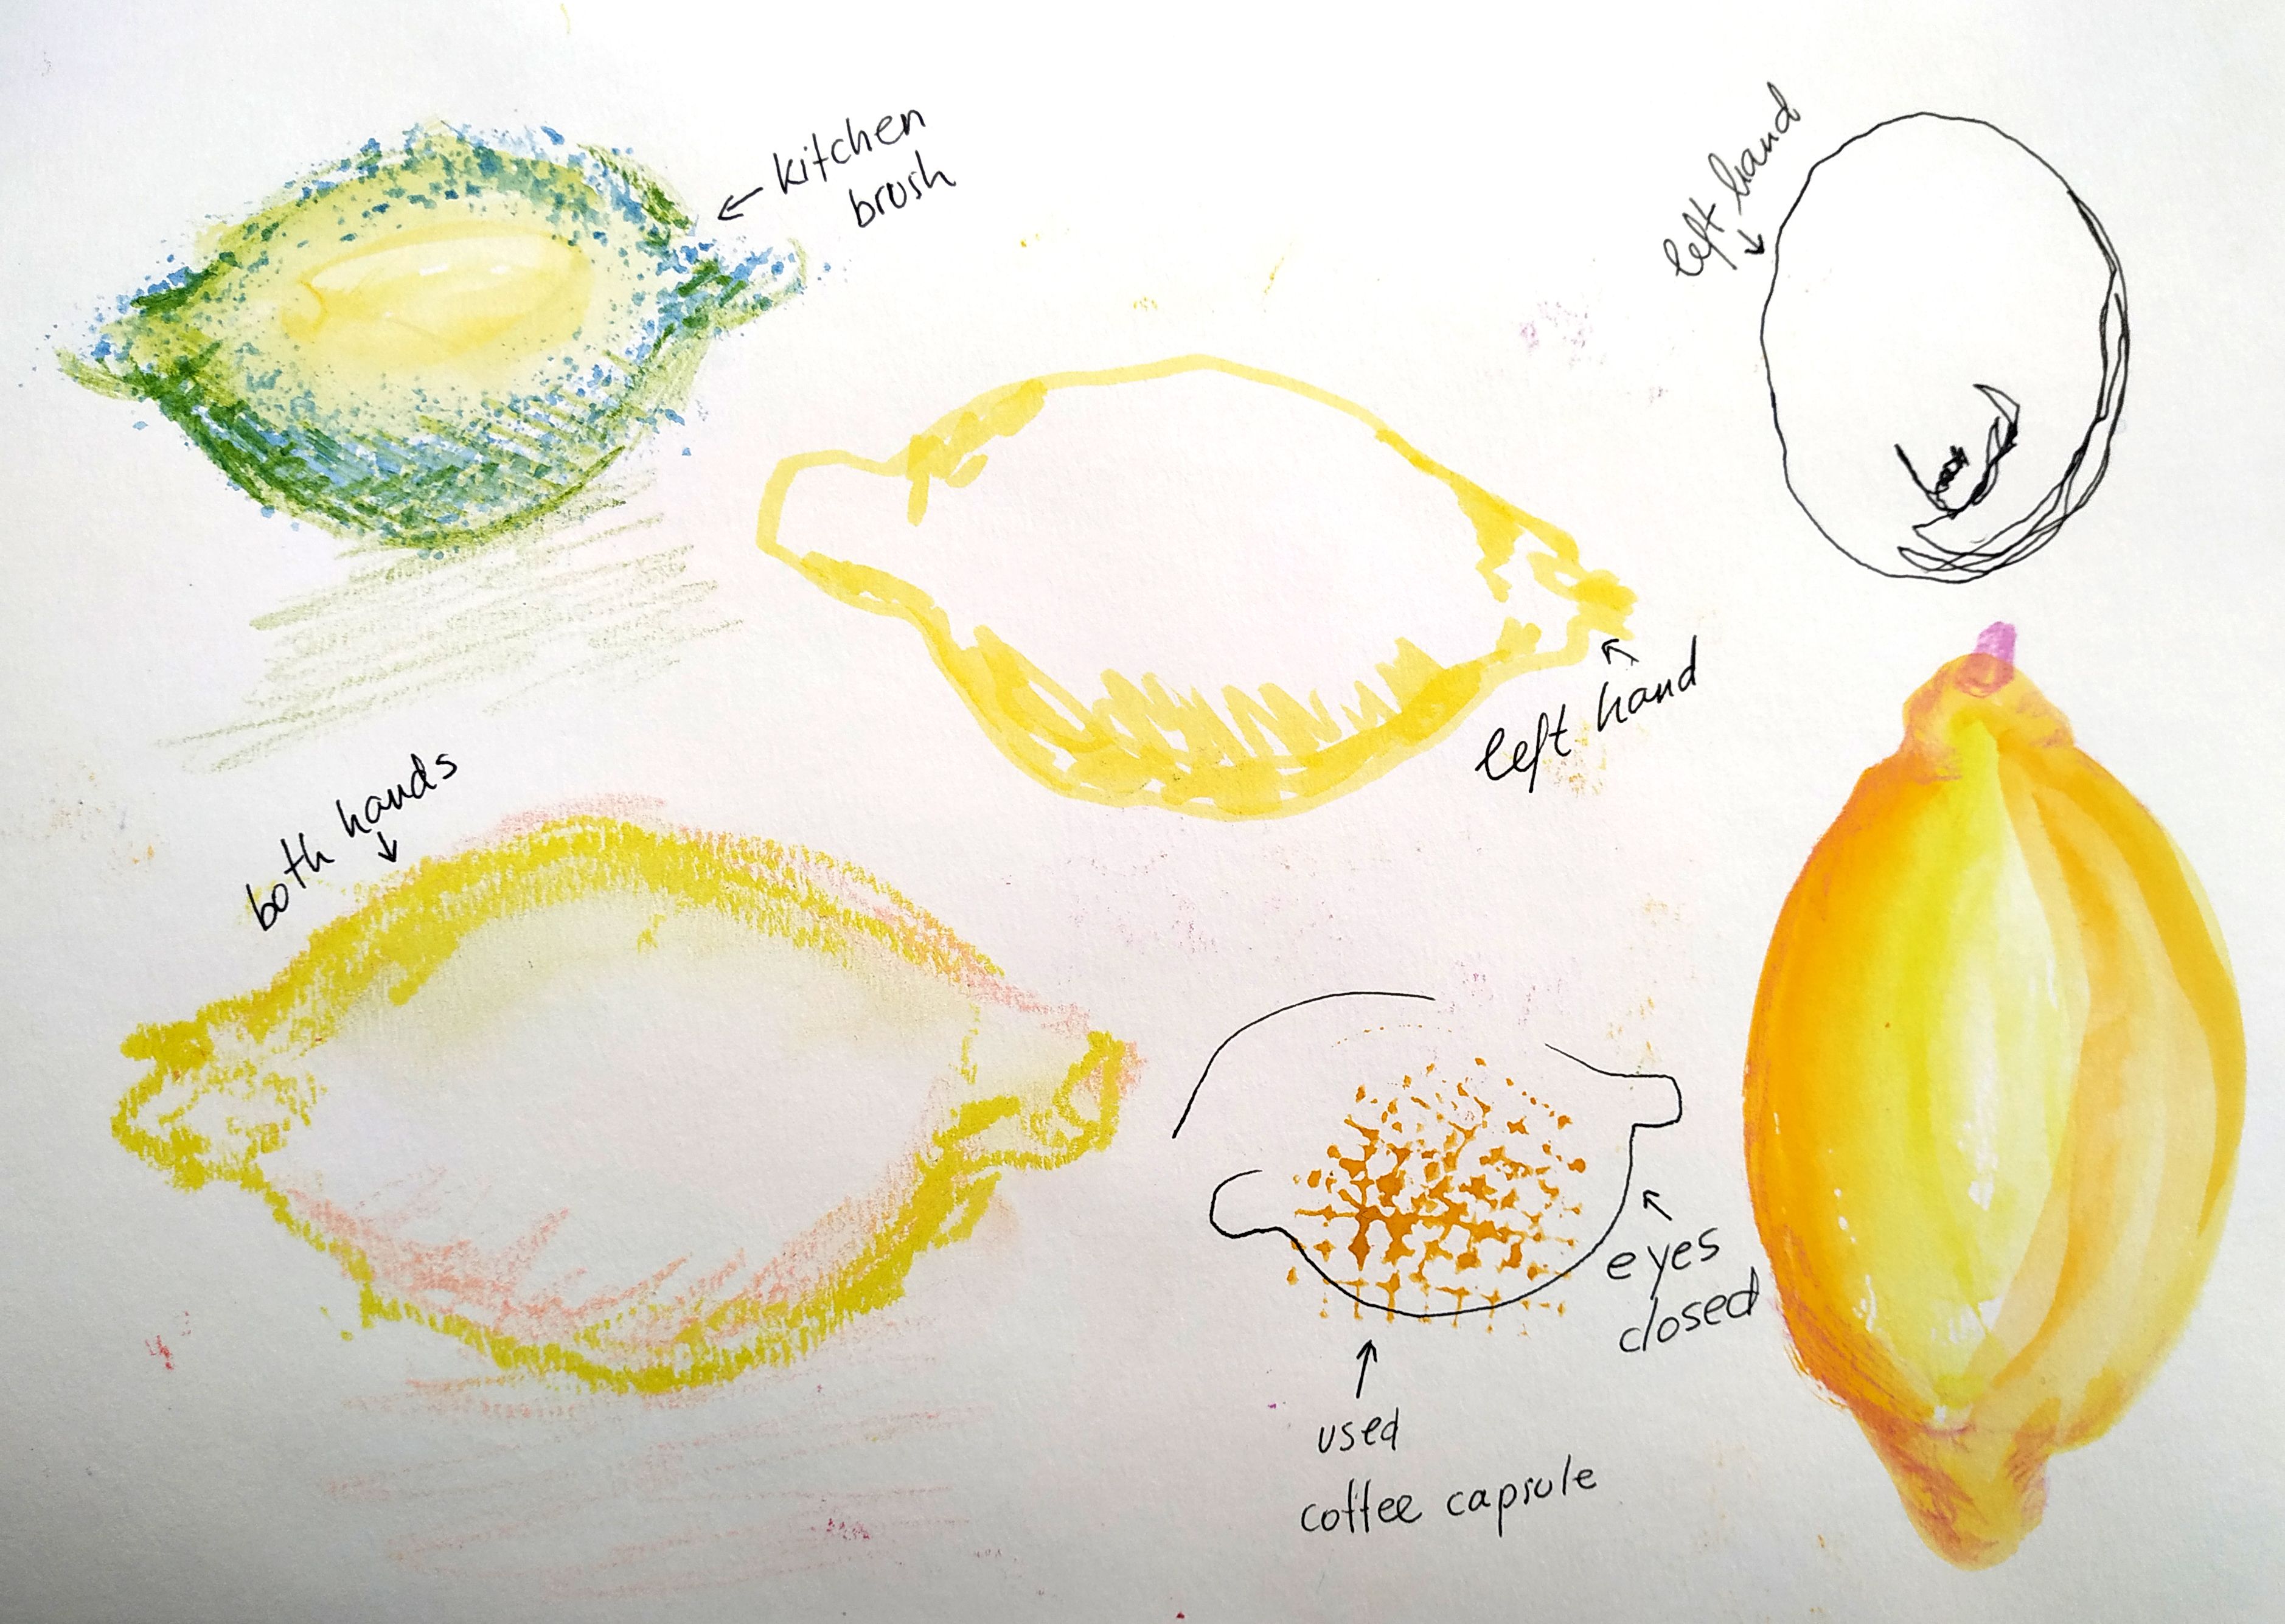 kitchen
brush
left hand
left hand
both hands
eyes
closed
used
coffee capsule